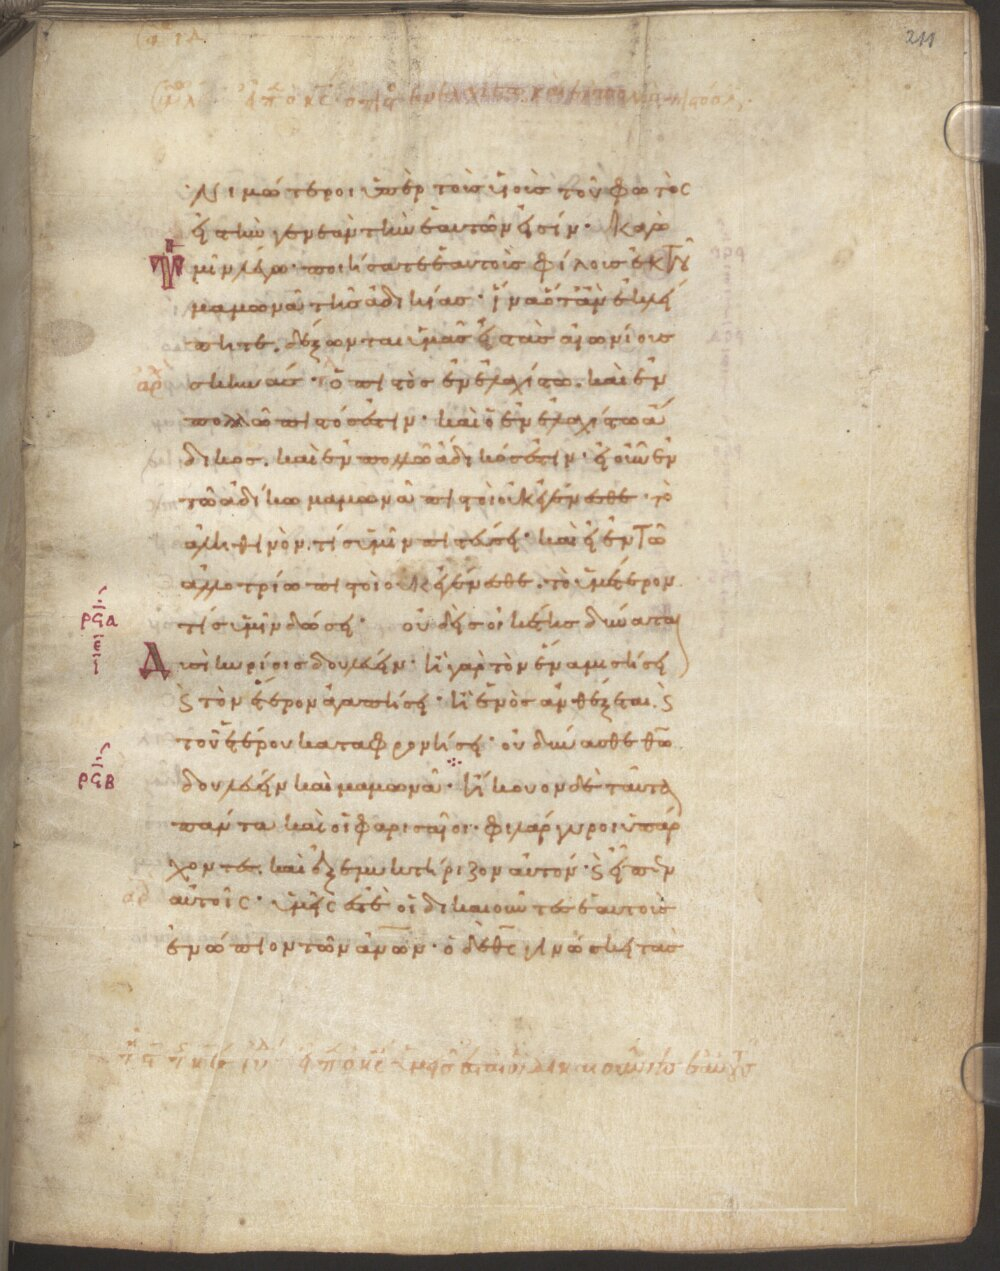 211
νιμώτεροι ὑπὲρ τοὺς υἱοὺς τοῦ φωτὸς
εἰς τὴν γενεὰν τὴν ἑαυτῶν εἰσίν· κἀγὼ
ὑμῖν λέγω· ποιήσατε ἑαυτοῖς φίλους ἐκ τοῦ
μαμωνᾶ τῆς ἀδικίας· ἵνα ὅταν ἐκλεί
πητε, δέξωνται ὑμᾶς εἰς τὰς αἰωνίους
ἀρχ σκηνάς· ὁ πιστὸς ἐν ἐλαχίστω, καὶ ἐν
πολλῶ πιστός ἐστιν· καὶ ὁ ἐν ἐλαχίστω ἄ
δικος, καὶ ἐν πολλῶ ἄδικός ἐστιν· εἰ οὖν ἐν
τῶ ἀδίκω μαμωνᾶ πιστοὶ οὐκ ἐγένεσθε· τὸ
ἀληθινὸν, τίς ὑμῖν πιστεύσει· καὶ εἰ ἐν τῶ
ἀλλοτρίω πιστοὶ οὐκ ἐγένεσθε, τὸ ὑμέτερον
ρϛα
τίς ὑμῖν δώσει· οὐδεὶς οἰκέτης δύναται
ε
Δυσὶ κυρίοις δουλεύειν· ἢ γὰρ τὸν ἕνα μισήσει
ϛ τὸν ἕτερον ἀγαπήσει· ἢ ἑνὸς ἀνθέξεται, ϛ
τοῦ ἑτέρου καταφρονήσει· οὐ δύνασθε θω
ρϛβ
δουλεύειν καὶ μαμωνᾶ· ἤκουον δὲ ταῦτα
πάντα καὶ οἱ φαρισαῖοι· φιλάργυροι ὑπάρ
χοντες, καὶ ἐξεμυκτήριζον αὐτόν· ϛ εἶπεν
αὐτοῖς· ὑμεῖς ἐστὲ οἱ δικαιοῦντες ἑαυτοὺς
ἐνώπιον τῶν ἀνων· ὁ δὲ θς γινώσκει τὰς